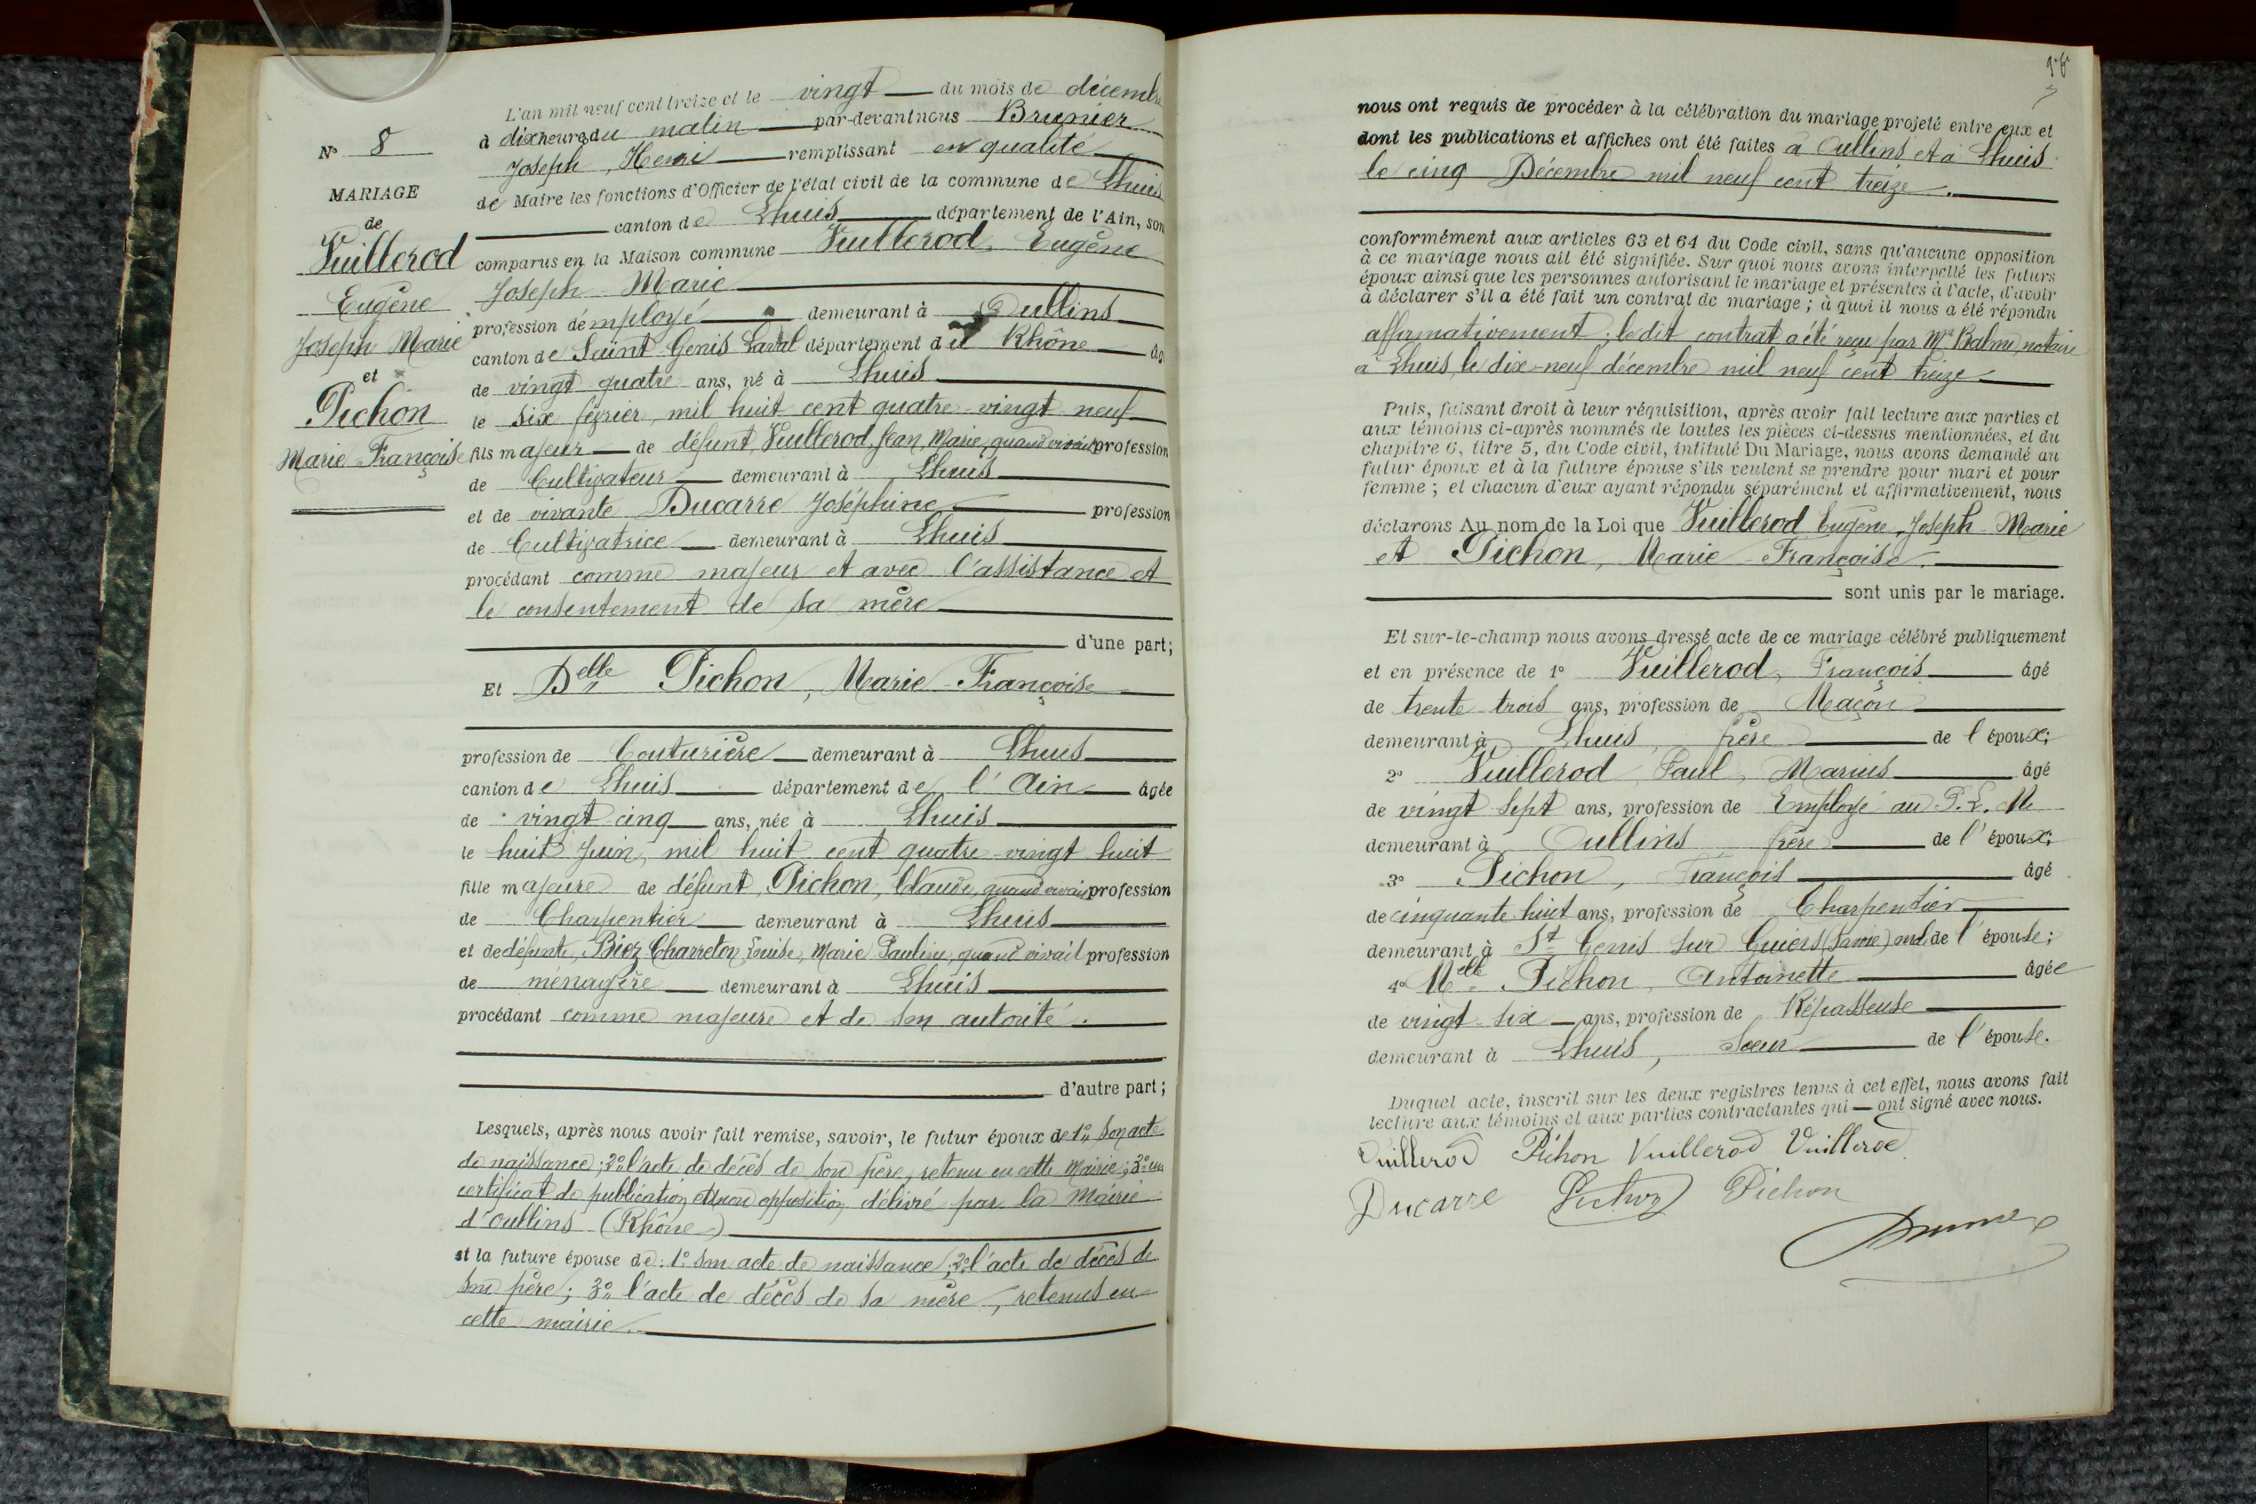 N° 8
MARIAGE
de
Vuillerod
Eugène
Joseph Marie
et
Pichon
Marie Françoise
L'an mil neuf cent treize et le vingt du mois de décembre
à dix heures du matin par-devant nous Brunier
Joseph, Henri remplissant en qualité
de Maire les fonctions d'Officier de l'état civil de la commune de Lhuis
canton de Lhuis département de l'Ain, son
comparus en la Maison commune Vuillerod, Eugène
Joseph Marie
profession d'employé demeurant à Oullins
canton de Saint Genis Laval département du Rhône âg
de vingt quatre ans, né à Lhuis
le six février, mil huit cent quatre-vingt neuf
fils majeur de défunt Vuillerod Jean, Marie, quand vivait profession
de Cultivateur demeurant à Lhuis
et de vivante Ducarre Joséphine profession
de Cultivatrice demeurant à Lhuis
procédant comme majeur et avec l'assistance et
le consentement de sa mère
d'une part;
Et Delle Pichon, Marie Françoise
profession de Couturière demeurant à Lhuis
canton de Lhuis département de l'Ain âgée
de vingt cinq ans, née à Lhuis
le huit Juin, mil huit cent quatre vingt huit
fille majeure de défunt, Pichon, Claude, quand vivait profession
de Charpentier demeurant à Lhuis
et de défunte, Biez Charreton Louise, Marie Pauline, quand vivait profession
de ménagère demeurant à Lhuis
procédant comme majeure et de son autorité.
d'autre part;
Lesquels, après nous avoir fait remise, savoir, le futur époux de 1° son acte
de naissance; 2° l'acte de décès de son père, retenu en cette Mairie; 3° un
certificat de publication et non opposition délivré par la Mairie
d'Oullins (Rhône)
et la future épouse de: 1° son acte de naissance; 2° l'acte de décès de
son père; 3° l'acte de décès de sa mère, retenus en
cette mairie.
nous ont requis de procéder à la célébration du mariage projeté entre eux et
dont les publications et affiches ont été faites à Oullins et à Lhuis
le cinq Décembre mil neuf cent treize.
conformément aux articles 63 et 64 du Code civil, sans qu'aucune opposition
à ce mariage nous ait été signifiée. Sur quoi nous avons interpellé les futurs
époux ainsi que les personnes autorisant le mariage et présentes à l'acte, d'avoir
à déclarer s'il a été fait un contrat de mariage; à quoi il nous a été répondu
affirmativement; ledit contrat a été reçu par Me Balme, notaire
à Lhuis, le dix-neuf décembre mil neuf cent treize
Puis, faisant droit à leur réquisition, après avoir fait lecture aux parties et
aux témoins ci-après nommés de toutes les pièces ci-dessus mentionnées, et du
chapitre 6, titre 5, du Code civil, intitulé Du Mariage, nous avons demandé au
futur époux et à la future épouse s'ils veulent se prendre pour mari et pour
femme; et chacun d'eux ayant répondu séparément et affirmativement, nous
déclarons Au nom de la Loi que Vuillerod Eugène, Joseph Marie
et Pichon, Marie Françoise.
sont unis par le mariage.
Et sur-le-champ nous avons dressé acte de ce mariage célébré publiquement
et en présence de 1° Vuillerod, François âgé
de trente trois ans, profession de Maçon
demeurant à Lhuis, frère de l'époux;
2° Vuillerod, Paul, Marius âgé
de vingt sept ans, profession de Employé au P.L.M
demeurant à Oullins frère de l'époux;
3° Pichon, François âgé
de cinquante huit ans, profession de Charpentier
demeurant à St Genis sur Guiers (Savoie) de l'épouse;
4° Melle Pichon, Antoinette âgée
de vingt-six ans, profession de Répasseuse
demeurant à Lhuis, Soeur de l'épouse.
Duquel acte, inscrit sur les deux registres tenus à cet effet, nous avons fait
lecture aux témoins et aux parties contractantes qui ont signé avec nous.
Vuillerod Pichon Vuillerod Vuillerod
Ducarre Pichon Pichon
Brunier